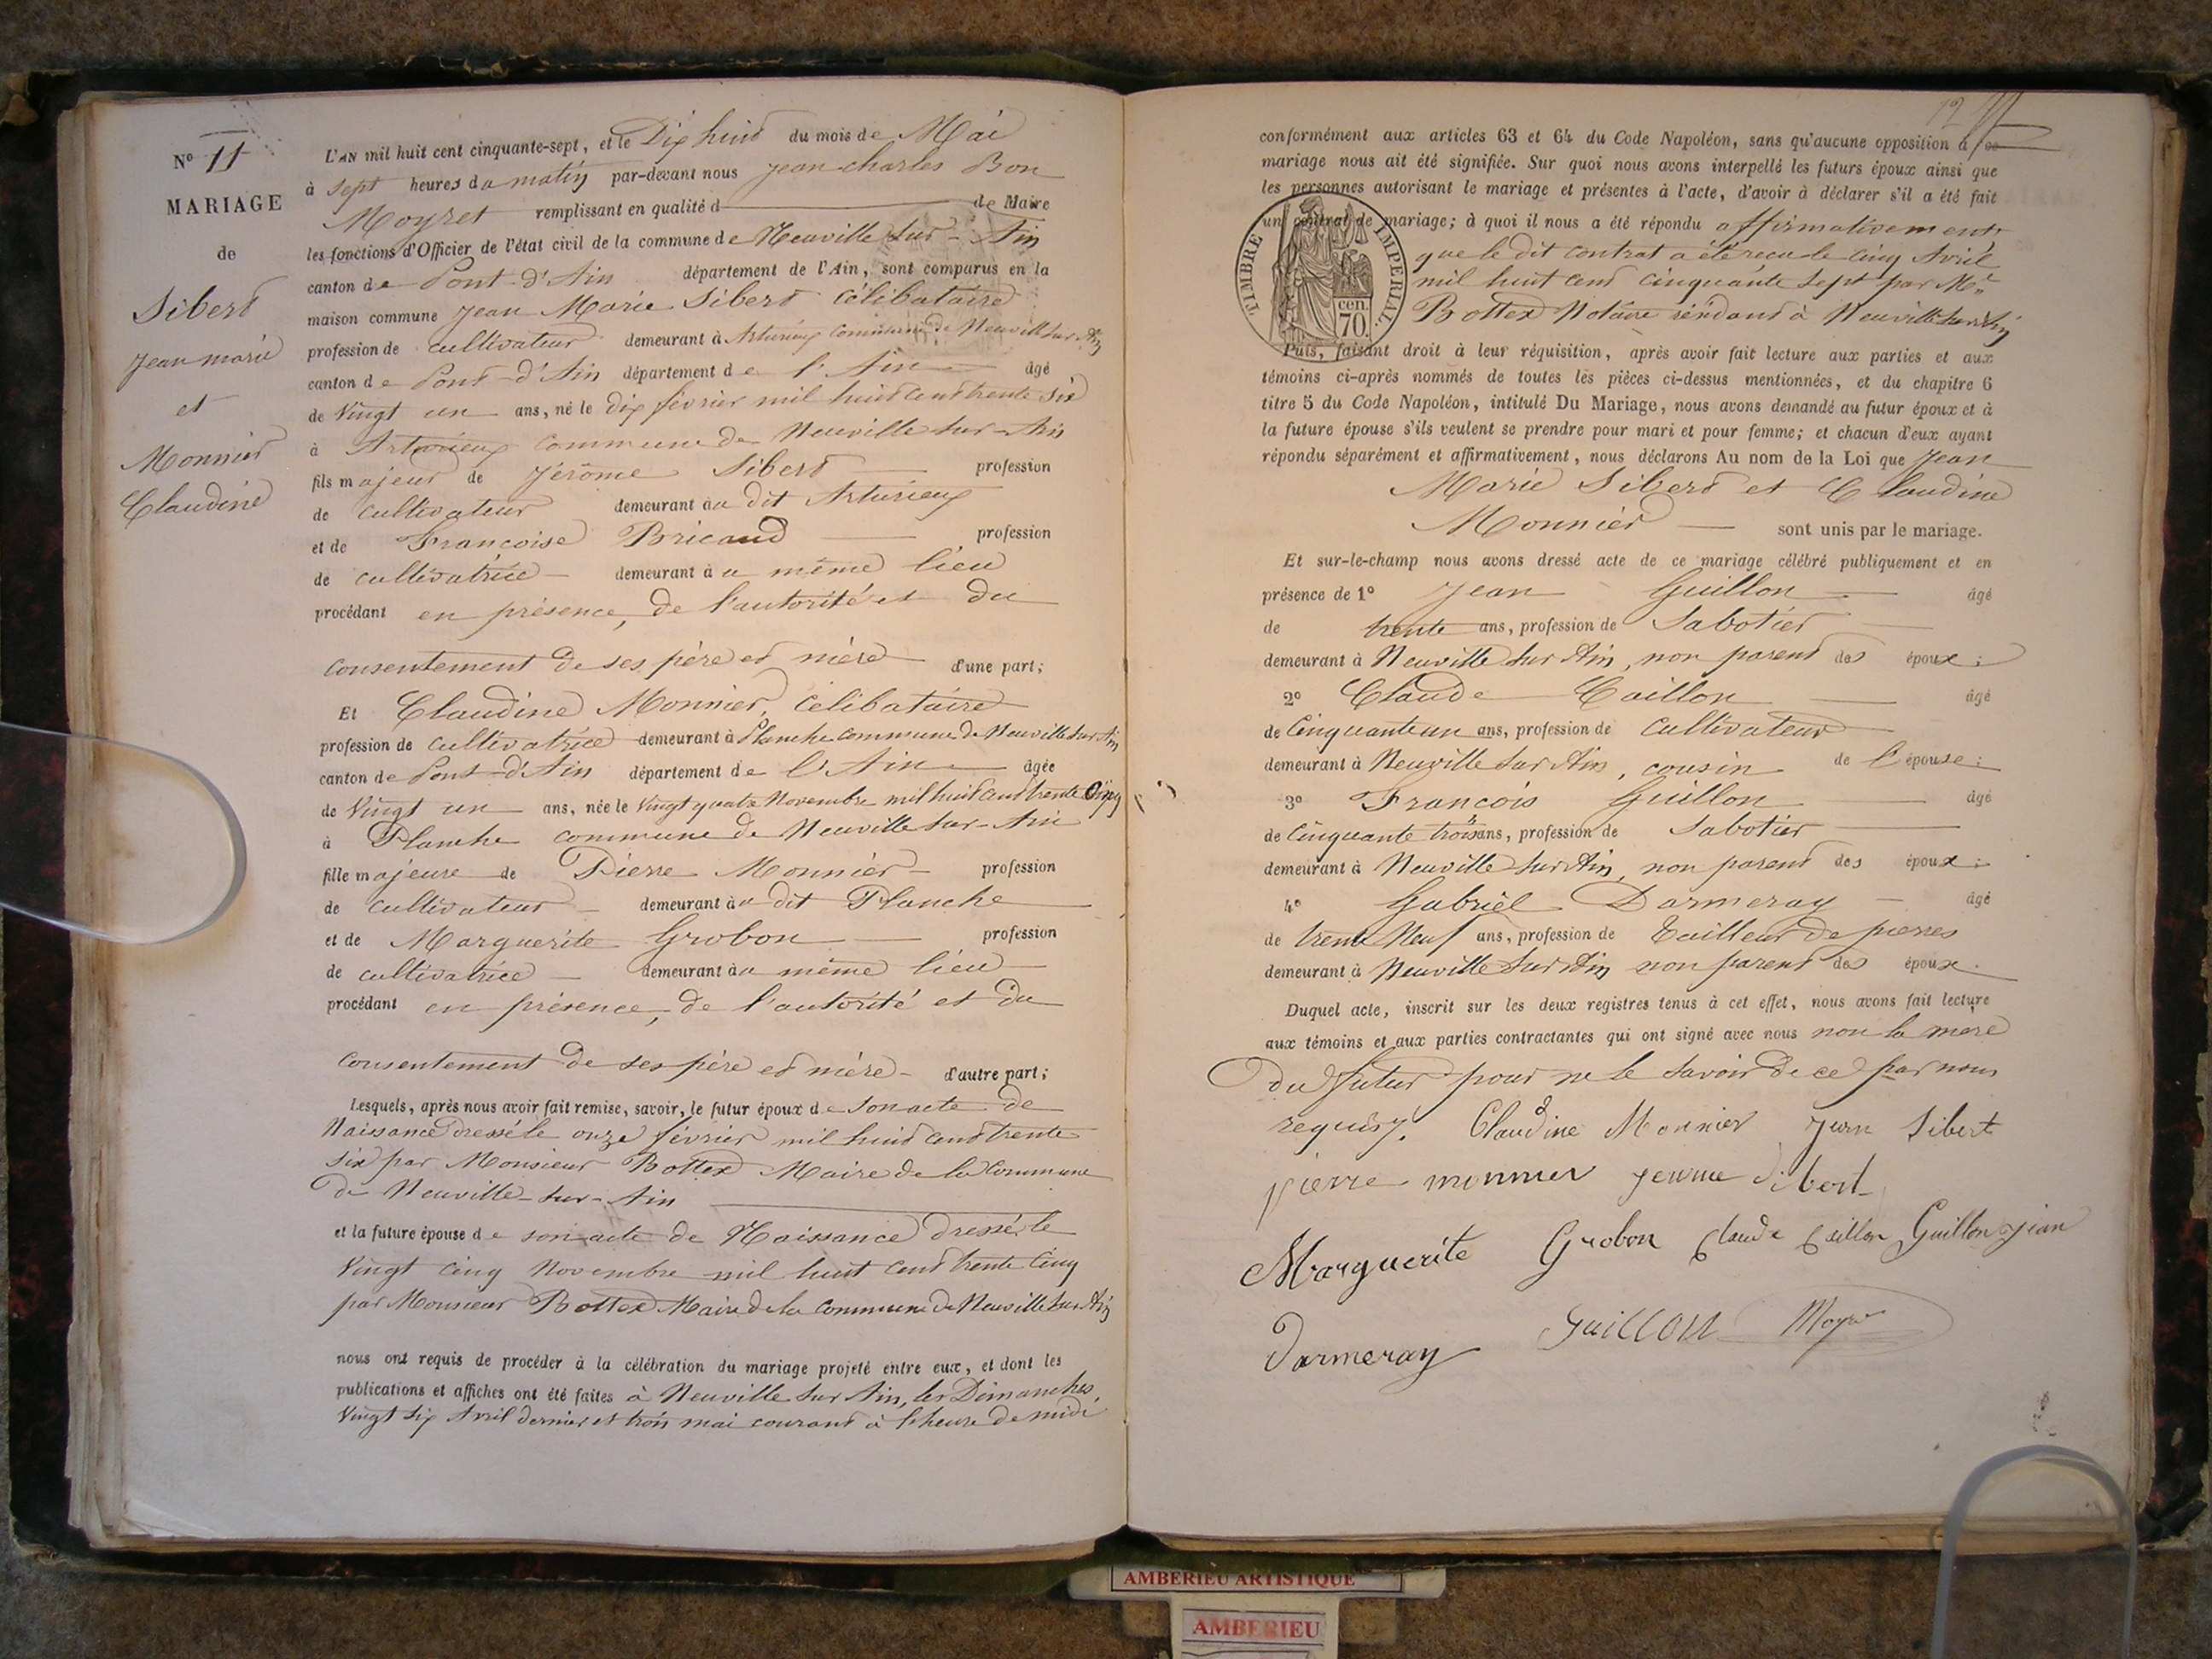 N° 11
MARIAGE
de
Sibert
Jean marie
et
Monnier
Claudine
L'AN mil huit cent cinquante-sept, et le Dix huit du mois de Mai
à sept heures du matin par-devant nous Jean charles Bon
Moyret remplissant en qualité d de Maire
les fonctions d'Officier de l'état civil de la commune de Neuville sur-Ain
canton de Pont-d'Ain département de l'Ain, sont comparus en la
maison commune Jean Marie Sibert Célibataire
profession de cultivateur demeurant à Arturieux Commune de Neuville sur Ain
canton de Pont-d'Ain département de l'Ain âgé
de Vingt un ans, né le dix février mil huit cent trente six
à Arturieux commune de Neuville sur-Ain
fils majeur de Jérôme Sibert profession
de cultivateur demeurant au dit Arturieux
et de Francoise Bricaud profession
de cultivatrice demeurant au même lieu
procédant en présence, de l'autorité et du
consentement de ses père et mère d'une part;
Et Claudine Monnier, Célibataire
profession de cultivatrice demeurant à Planche commune de Neuville sur Ain
canton de Pont-d'Ain département de l'Ain âgée
de Vingt un ans, née le Vingt quatre Novembre mil huit cent trente Cinq
à Planche commune de Neuville sur-Ain
fille majeure de Pierre Monnier profession
de cultivateur demeurant au dit Planche
et de Marguerite Grobon profession
de cultivatrice demeurant au même lieu
procédant en présence, de l'autorité et du
consentement de ses père et mère d'autre part;
Lesquels, après nous avoir fait remise, savoir, le futur époux de son acte de
Naissance dressé le onze février mil huit cent trente
six par Monsieur Bottex Maire de la commune
de Neuville-sur-Ain
et la future épouse de son acte de Naissance dressé le
Vingt cinq Novembre mil huit cent trente Cinq
par Monsieur Bottex Maire de la commune de Neuville sur Ain
nous ont requis de procéder à la célébration du mariage projeté entre eux, et dont les
publications et affiches ont été faites à Neuville sur Ain, les Dimanches
Vingt six Avril dernier et trois mai courant à l'heure de midi
conformément aux articles 63 et 64 du Code Napoléon, sans qu'aucune opposition à ce
mariage nous ait été signifiée. Sur quoi nous avons interpellé les futurs époux ainsi que
les personnes autorisant le mariage et présentes à l'acte, d'avoir à déclarer s'il a été fait
un contrat de mariage; à quoi il nous a été répondu affirmativement
que le dit contrat a été recu le cinq Avril
mil huit cent cinquante sept par Me
Bottex Notaire résidant à Neuville sur Ain
TIMBRE IMPERIAL.
cen
70.
Puis, faisant droit à leur réquisition, après avoir fait lecture aux parties et aux
témoins ci-après nommés de toutes les pièces ci-dessus mentionnées, et du chapitre 6
titre 5 du Code Napoléon, intitulé Du Mariage, nous avons demandé au futur époux et à
la future épouse s'ils veulent se prendre pour mari et pour femme; et chacun d'eux ayant
répondu séparément et affirmativement, nous déclarons Au nom de la Loi que Jean
Marie Sibert et Claudine
Monnier sont unis par le mariage.
Et sur-le-champ nous avons dressé acte de ce mariage célébré publiquement et en
présence de 1° Jean Guillon âgé
de trente ans, profession de Sabotier
demeurant à Neuville sur Ain, non parent des époux;
2° Claude Caillon âgé
de Cinquante un ans, profession de cultivateur
demeurant à Neuville sur Ain, cousin de l'épouse;
3° Francois Guillon âgé
de Cinquante trois ans, profession de Sabotier
demeurant à Neuville sur Ain, non parent des époux;
4° Gabriel Darmeray âgé
de trente Neuf ans, profession de Tailleur de pierres
demeurant à Neuville sur Ain non parent des époux.
Duquel acte, inscrit sur les deux registres tenus à cet effet, nous avons fait lecture
aux témoins et aux parties contractantes qui ont signé avec nous non la mere
du futur pour ne le savoir de ce par nous
requis. Claudine Monnier Jean Sibert
pierre monnier Jerome Sibert
Marguerite Grobon Claude Caillon Guillon jean
Darmeray Guillon Moyret
AMBERIEU ARTISTIQUE
AMBERIEU